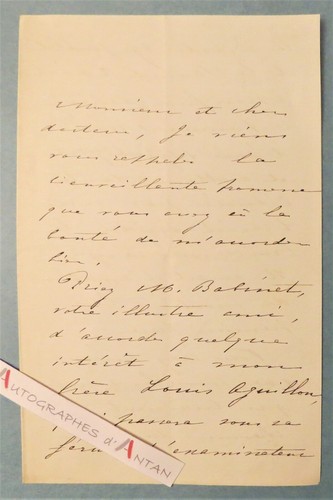 Monsieur et cher
docteur, Je viens
vous rappeler la
bienveillante promesse
que vous avez eu la
bonté de m'accorder
hier.
Priez M. Babinet,
votre illustre ami,
d'accorder quelque
intérêt à mon
frère Louis Aguillon,
qui passera sous sa
d'examinateur
AUTOGRAPHES d'ANTAN